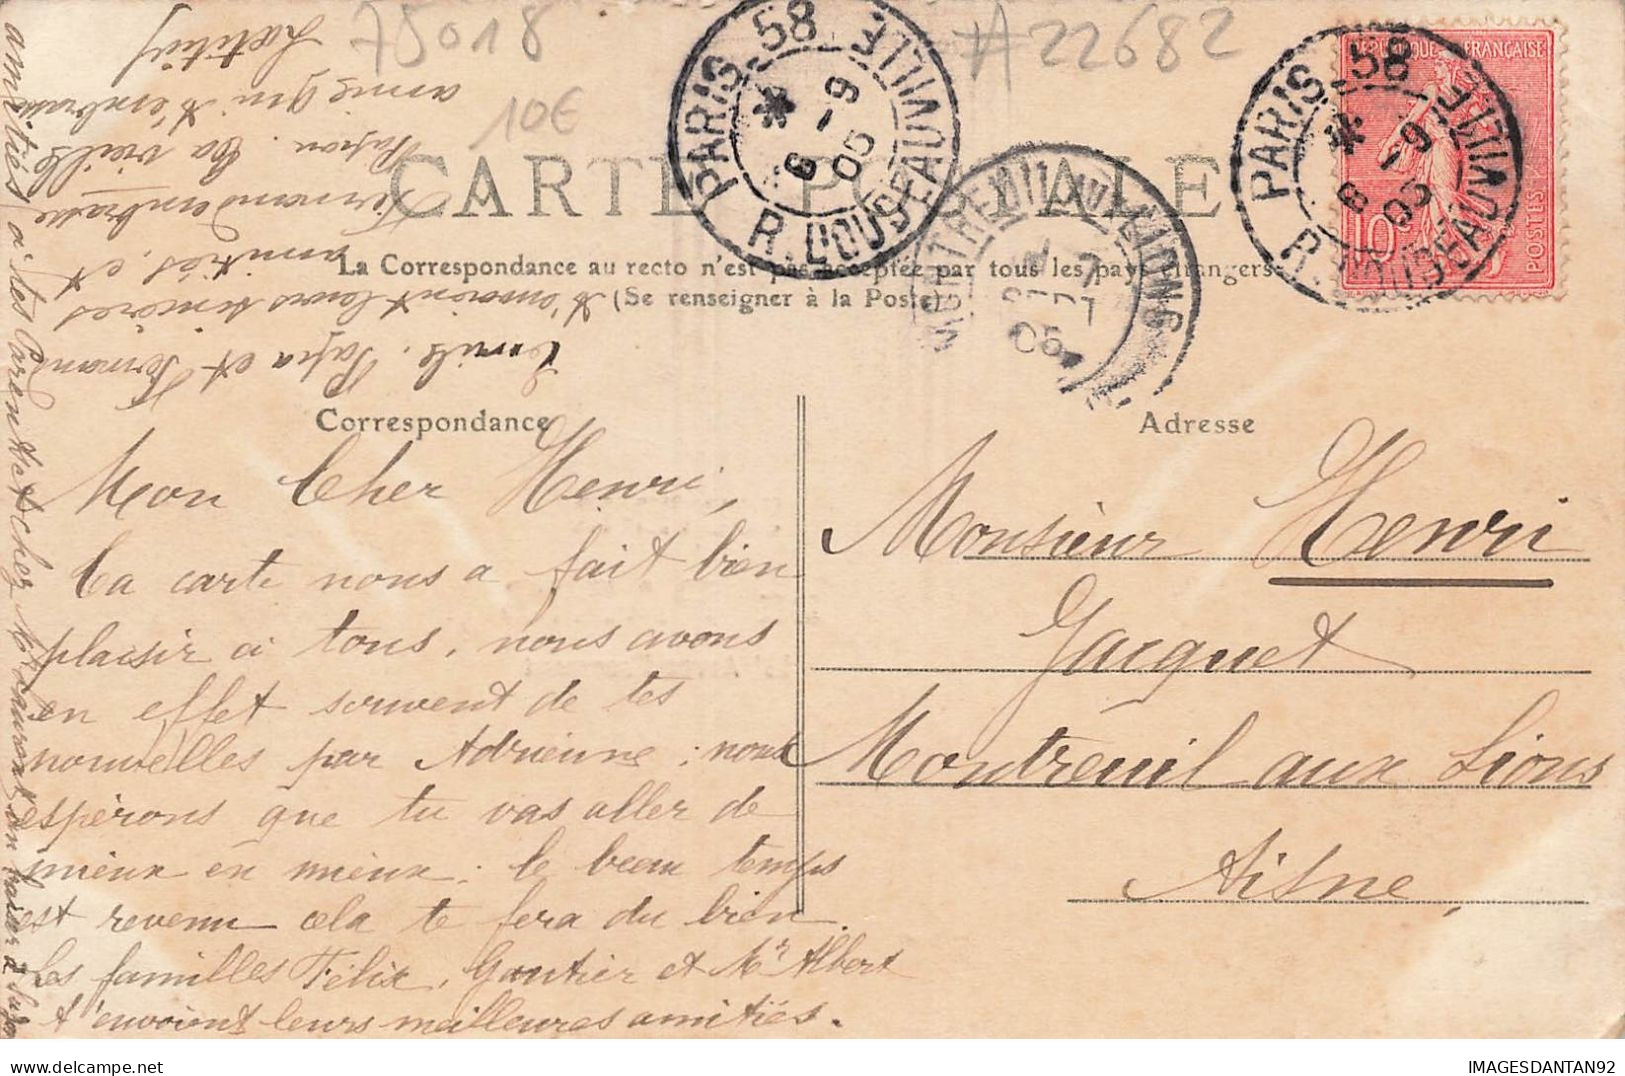 75018
#22682
10€
PARIS 58
6 -9 05
R. DOUDEAUVILLE
PARIS 58
6 -9 05
R. DOUDEAUVILLE
REPUBLIQUE FRANÇAISE
10c
POSTES
CARTE POSTALE
MONTREUIL AUX LIONS
7
SEPT
05
La Correspondance au recto n'est pas acceptée par tous les pays étrangers
(Se renseigner à la Poste)
Correspondance
Adresse
Mon Cher Henri,
Ta carte nous a fait bien
plaisir à tous, nous avons
en effet souvent de tes
nouvelles par Adrienne ; nous
espérons que tu vas aller de
mieux en mieux ; le beau temps
est revenu cela te fera du bien.
Les familles Félix, Gautier et Mr Albert
t'envoient leurs meilleures amitiés.
Emile. Papa et Fernand
t'envoient leurs sincères
amitiés, et
Fernand embrasse
. Ta vieille
amie qui t'embrasse
amitiés à tes Parents et chez Mr
Monsieur Henri
Jacquet
Montreuil aux Lions
Aisne,
IMAGESDANTAN92